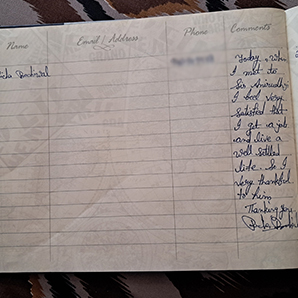 Name Email / Address Phone Comments
Today, when
I met to
Sir Anirudh
I feel very
satisfied that
I get a job
and live a
well settled
life. So I
very thankful
to him
Thanking you